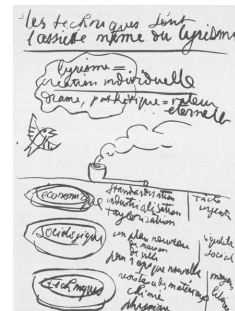 les techniques sont
l'assiette même du lyrisme
lyrisme =
création individuelle
drame, pathétique = valeur
éternelle
économique
Standardisation
industrialisation
Taylorisation
Sociologique
un plan nouveau
de maison
de ville
pour 1 époque nouvelle
équilibre
social
Techniques
résistance des matériaux
chimie
physique